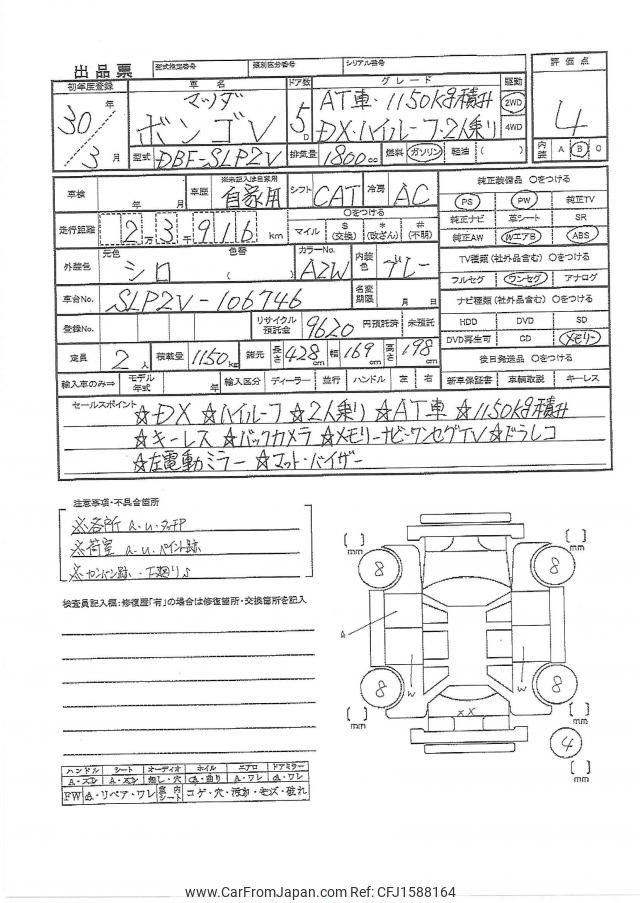 出品票 型式指定番号 類別区分番号 シリアル番号 評価点
初年度登録 車名 ドア数 グレード 駆動
30年 3月 マツダ ボンゴV 5D AT車・1150kg積み 2WD 4
DX・ハイルーフ・2人乗り 4WD
型式 DBF-SLP2V 排気量 1800cc 燃料 ガソリン 軽油 ( ) 内装 A B C
車検 年 月 車歴 ※未記入は自家用 自家用 シフト CAT 冷房 AC 純正装備品 〇をつける
PS PW 純正TV
走行距離 2万3千916km 〇をつける マイル $(交換) *(改ざん) #(不明) 純正ナビ 革シート SR
純正AW WエアB ABS
外装色 元色 シロ 色替( ) カラーNo. A2W 内装色 グレー TV種類(社外品含む) 〇をつける
フルセグ ワンセグ アナログ
車台No. SLP2V-106746 名変期限 月 日 ナビ種類(社外品含む) 〇をつける
登録No. リサイクル預託金 9620 円預託済 未預託 HDD DVD SD
DVD再生可 CD メモリー
定員 2人 積載量 1150kg 諸元 長さ 428cm 幅 169cm 高さ 198cm 後日発送品 〇をつける
輸入車のみ⇒ モデル年式 年 輸入区分 ディーラー 並行 ハンドル 左 右 新車保証書 車輌取説 キーレス
セールスポイント ☆DX ☆ハイルーフ ☆2人乗り ☆AT車 ☆1150kg積み
☆キーレス ☆バックカメラ ☆メモリーナビ・ワンセグTV ☆ドラレコ
☆左電動ミラー ☆マット・バイザー
注意事項・不具合箇所
※各所 A.U.タッチP
※荷室 A.U.ペイント跡
※カンバン跡・下廻りS
検査員記入欄:修復歴「有」の場合は修復箇所・交換箇所を記入
[ ] mm [ ] mm
8 8
A
W W
8 8
XX
[ ] mm [ ] mm
4
[ ] mm
ハンドル シート オーディオ ホイル エアロ ドアミラー
A・スレ A・スレ 無し・穴 A・曲り A・ワレ A・ワレ
FW A・リペア・ワレ 室内シート コゲ・穴・汚れ・キズ・破れ
www.CarFromJapan.com Ref: CFJ1588164